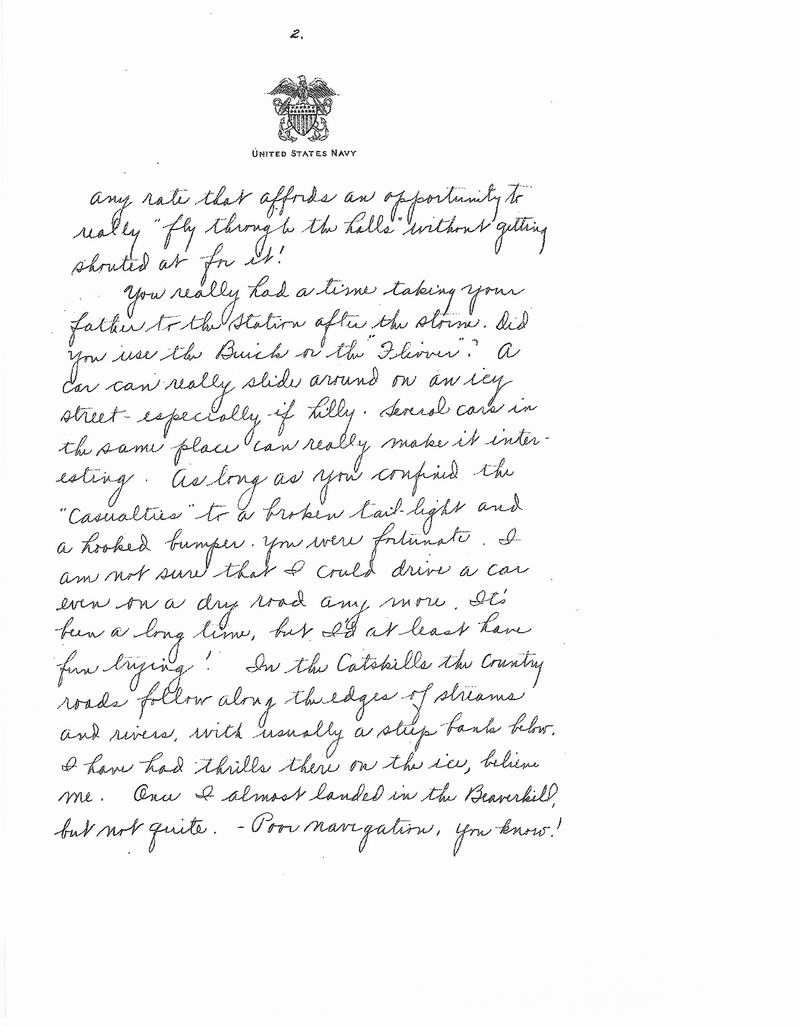 2.
UNITED STATES NAVY
any rate that affords an opportunity to
really "fly through the halls" without getting
shouted at for it!
You really had a time taking your
father to the Station after the storm. Did
you use the Buick or the "Flivver"? A
car can really slide around on an icy
street - especially if hilly. Several cars in
the same place can really make it inter-
esting. As long as you confined the
"Casualties" to a broken tail-light and
a hooked bumper. you were fortunate. I
am not sure that I could drive a car
even on a dry road any more. It's
been a long time, but I'd at least have
fun trying! In the Catskills the Country
roads follow along the edges of streams
and rivers, with usually a steep bank below.
I have had thrills there on the ice, believe
me. Once I almost landed in the Beaverkill,
but not quite. - Poor navigation, you know!